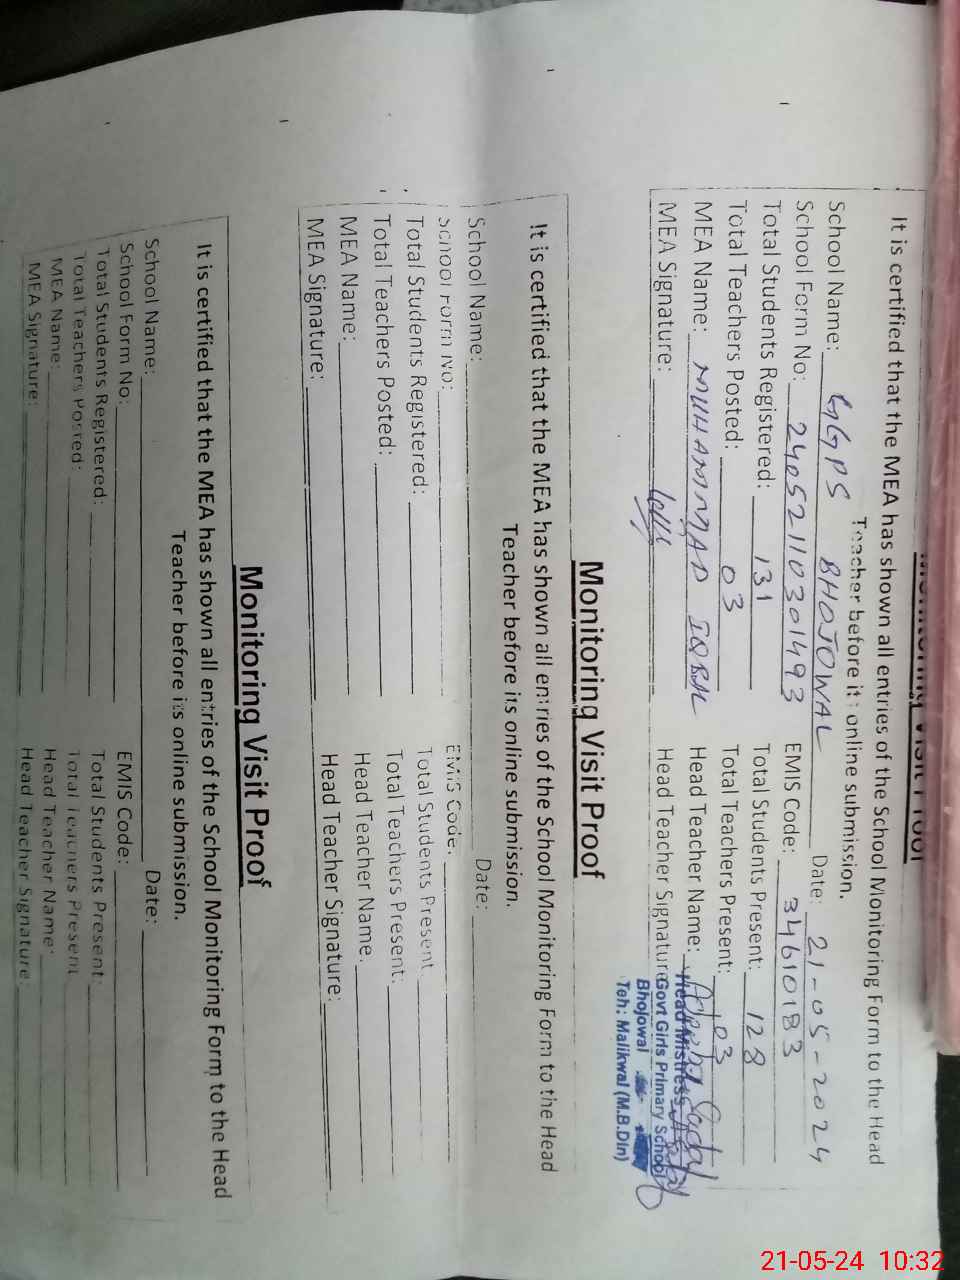 Monitoring Visit Proof
It is certified that the MEA has shown all entries of the School Monitoring Form to the Head
Teacher before its online submission.
School Name: GGPS BHOJOWAL Date: 21-05-2024
School Form No: 24052110301493 EMIS Code: 34610183
Total Students Registered: 131 Total Students Present: 128
Total Teachers Posted: 03 Total Teachers Present: 03
MEA Name: MUHAMMAD IQBAL Head Teacher Name:
MEA Signature: Head Teacher Signature
Head Mistress
Govt Girls Primary School
Bhojowal
Teh: Malikwal (M.B.Din)
Monitoring Visit Proof
It is certified that the MEA has shown all entries of the School Monitoring Form to the Head
Teacher before its online submission.
School Name: Date:
School Form No: EMIS Code:
Total Students Registered: Total Students Present
Total Teachers Posted: Total Teachers Present:
MEA Name: Head Teacher Name.
MEA Signature: Head Teacher Signature:
Monitoring Visit Proof
It is certified that the MEA has shown all entries of the School Monitoring Form to the Head
Teacher before its online submission.
School Name: Date:
School Form No: EMIS Code:
Total Students Registered: Total Students Present:
Total Teachers Posted: Total Teachers Present
MEA Name: Head Teacher Name:
MEA Signature: Head Teacher Signature:
21-05-24 10:32